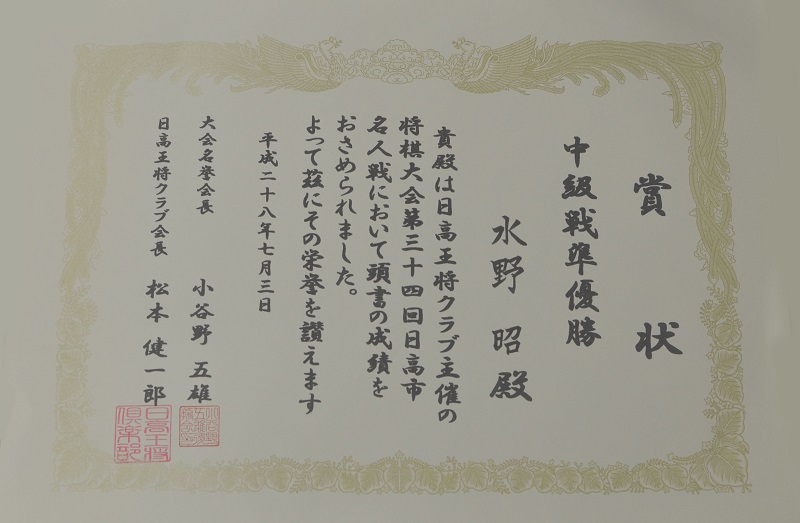 賞状
中級戦準優勝
水野 昭 殿
貴殿は日高王将クラブ主催の
将棋大会第三十四回日高市
名人戦において頭書の成績を
おさめられました。
よって茲にその栄誉を讃えます
平成二十八年七月三日
大会名誉会長 小谷野 五雄
日高王将クラブ会長 松本 健一郎
日高王将
倶楽部